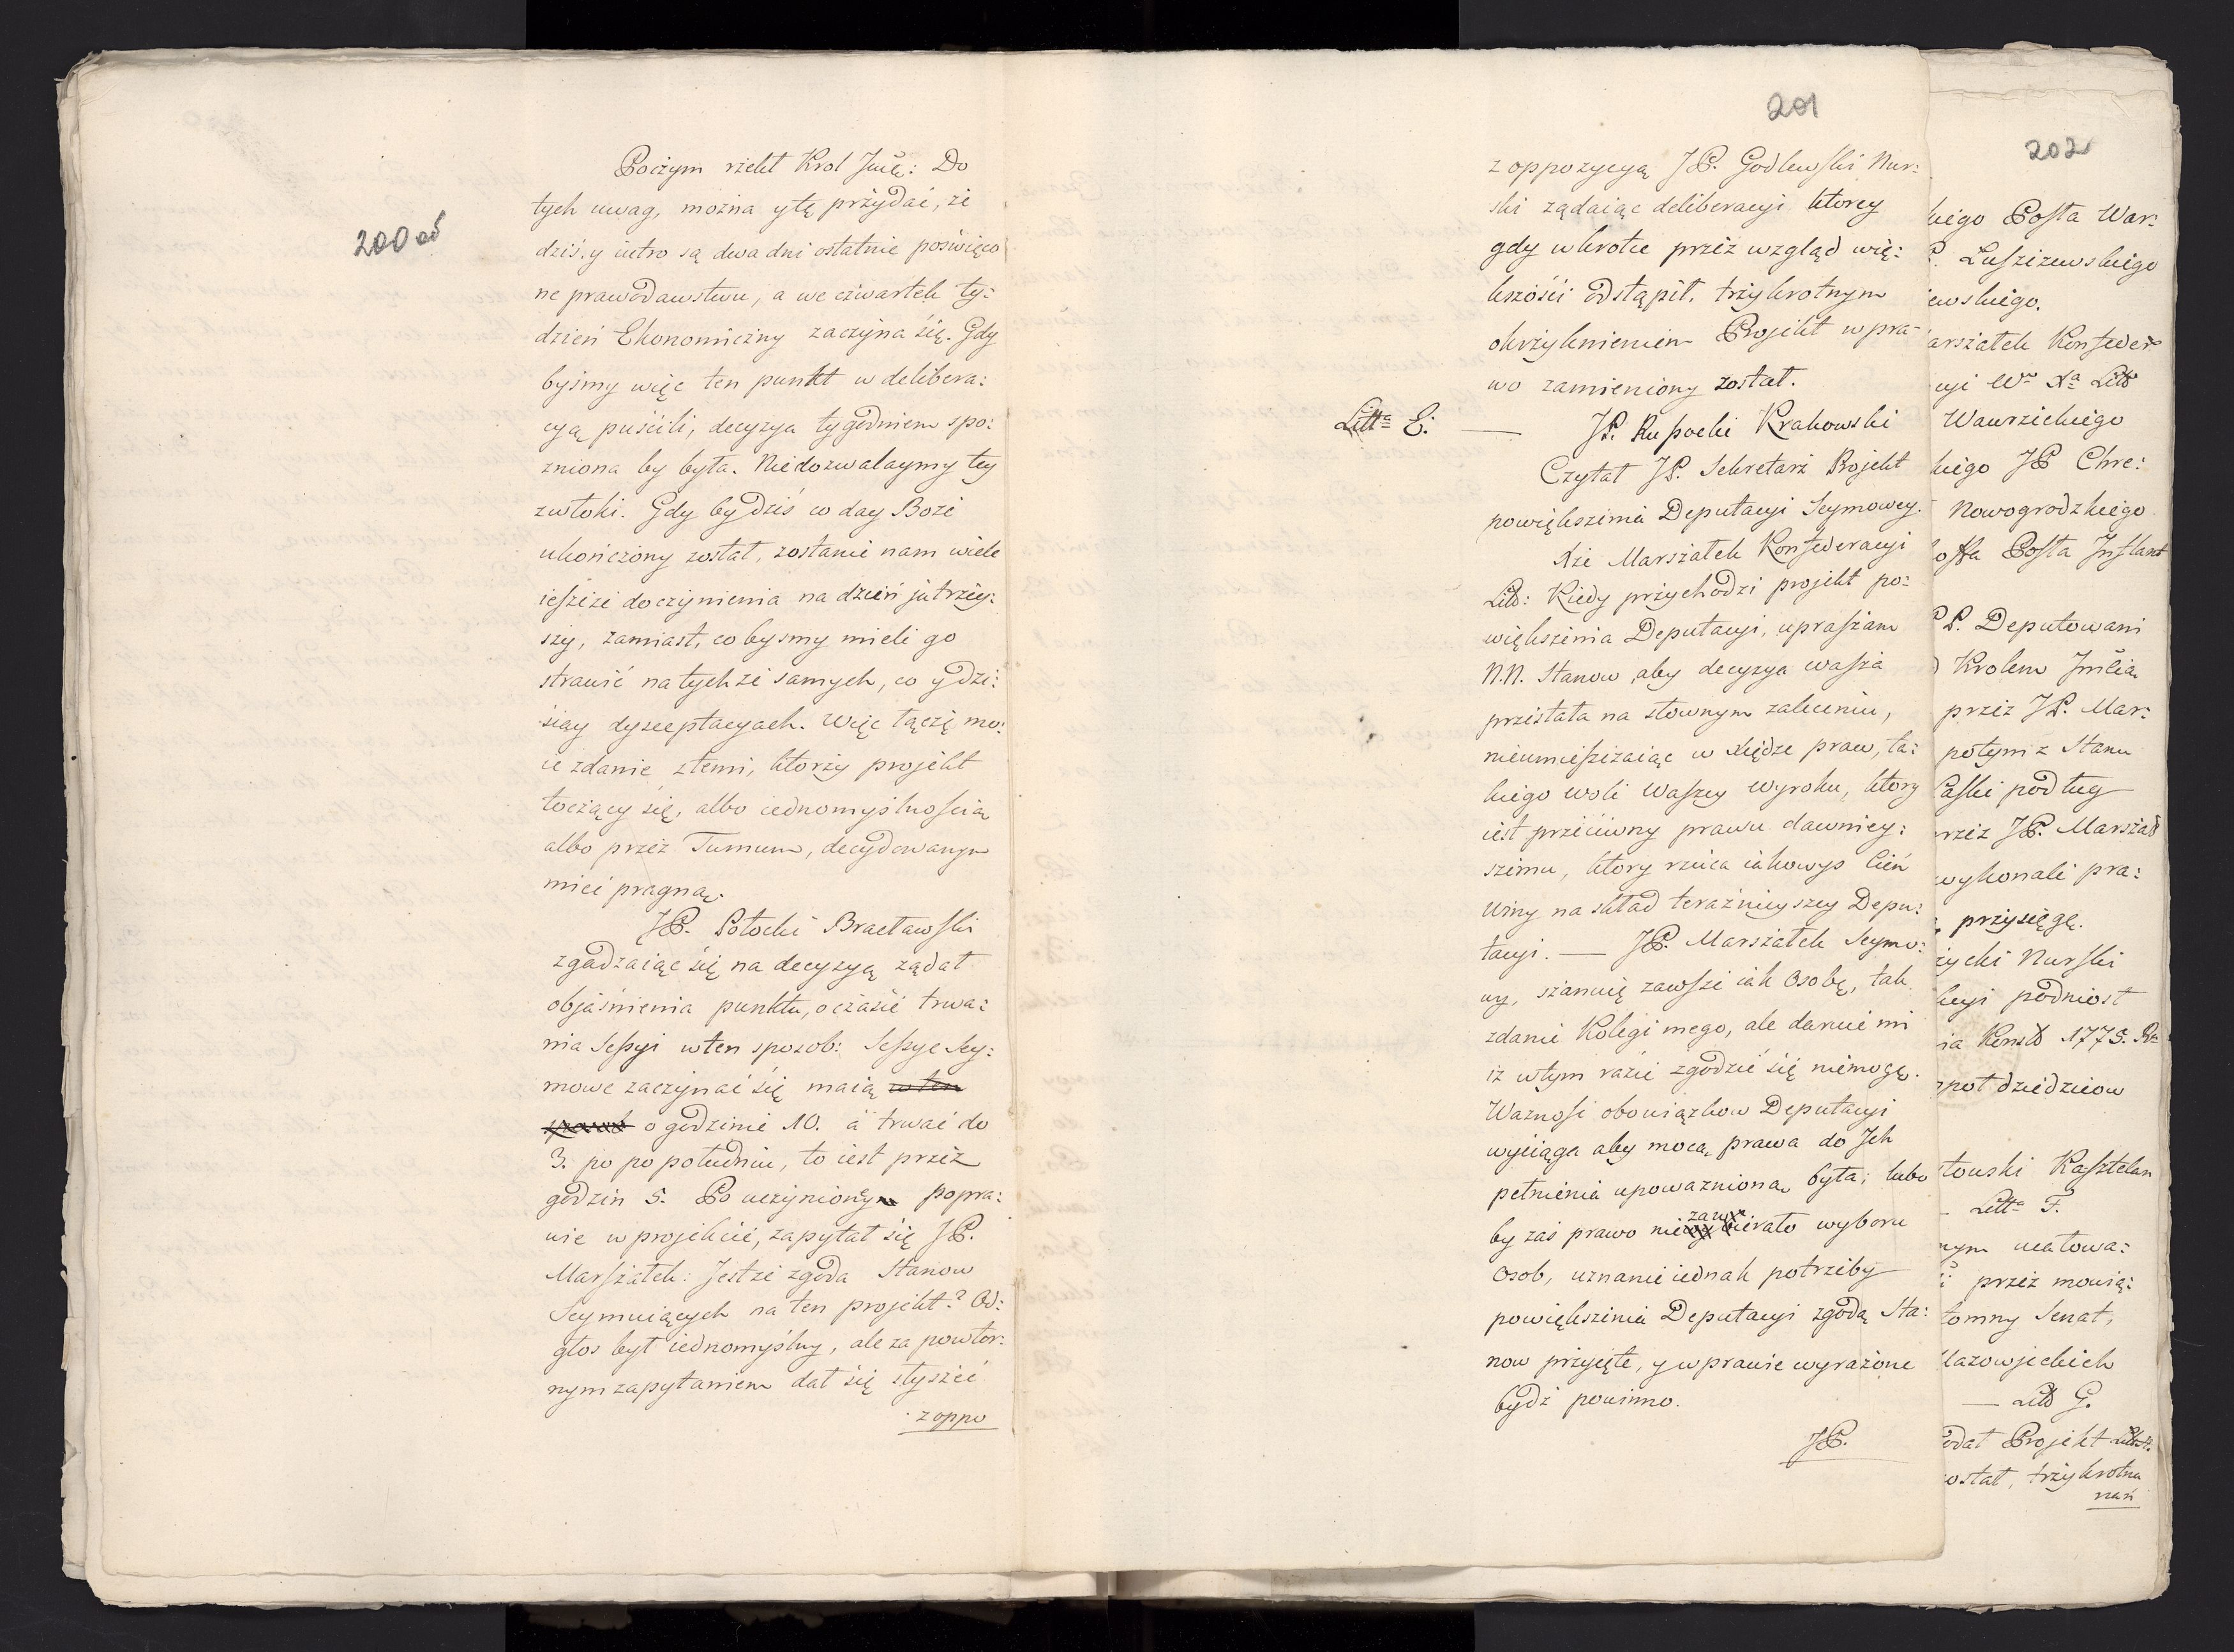 200 od
Poczym rzekł Krol Jmć: Do
tych uwag, można y tę przydać, że
dziś, y iutro są dwa dni ostatnie poswięco
ne prawodawstwu, a we czwartek ty:
dzień Ekonomiczny zaczyna się. Gdy
byśmy więc ten punkt w delibera:
cyą puścili, decyzya tygodniem spo:
zniona by była. Niedozwalaymy tey
zwłoki. Gdy by dziś co day Boże
ukończony został, zostanie nam wiele
ieszcze do czynienia na dzień jutrzey:
szy, zamiast, co bysmy mieli go
strawić na tychże samych, co y dzi:
sieay dysceptacyach. Więc łączę mo:
ie zdanie z temi, ktorzy projekt
toczący się, albo iednomyślnością
albo przez Turnum, decydowanym
mieć pragną.
JP. Potocki Bracławski
zgadzaiąc się na decyzyą żądał
objaśnienia punktu, o czasie trwa:
nia Sessyi w ten sposob: Sessye Sey:
mowe zaczynać się maią w ten
sposob o godzinie 10. a trwać do
3. po po południu, to iest przez
godzin 5. Po uczynioney popra:
wie w projekcie, zapytał się JP.
Marszałek: Jestże zgoda Stanow
Seymuiących na ten projekt? Od:
głos był iednomyślny, ale za powtor:
nym zapytaniem dał się słyszeć
z oppo
201
z oppozycyą JP. Godlewski Nur:
ski żądaiąc deliberacyi ktorey
gdy wkrotce przez wzgląd wię:
kszości odstąpił. trzykrotnym
okrzyknieniem Projekt w pra-
wo zamieniony został.
Litta E. — JP. Rupocki Krakowski
Czytał JP. Sekretarz Projekt
powiększenia Deputacyi Seymowey.
Xże Marszałek Konfederacyi
Litt: Kiedy przychodzi projekt po:
większenia Deputacyi, upraszam
N.N. Stanow, aby decyzya wasza
przestała na słownym zaleceniu,
nieumieszczaiąc w Xiędze praw, ta:
kiego woli waszey wyroku, ktory
iest przeciwny prawu dawniey:
szemu, ktory rzuca iakowyś Cień
winy na skład teraźnieyszey Depu:
tacyi. — JP. Marszałek Seymo:
wy, szanuię zawsze iak Osobę, tak
zdanie Kolegi mego, ale daruie mi
iż w tym razie zgodzić się niemogę.
Ważność obowiązkow Deputacyi
wyciąga aby mocą prawa do Jch
pełnienia upoważnioną była; lubo
by zaś prawo nie zawierało wyboru
Osob, uznanie iednak potrzeby
powiększenia Deputacyi zgodą Sta:
now przyięte, y w prawie wyrażone
bydź powinno.
JP.
202
kiego Posła War:
P. Luszczewskiego
ewskiego.
arszałek Konfeder
Wawrzeckiego
kiego JP Chre:
Nowogrodzkiego
Posła Inflant
PP. Deputowani
Krolem Jmcią
przez JP. Mar:
potym z Stanu
Laski podług
rzez JP. Marszał
wykonali pra:
przysięgę.
życki Nurski
kcyi podniosł
1775.
społ dziedzicow
towski Kasztelan
Litta F.
nym ucałowa:
przez mowią:
tomny Senat,
Mazowieckich
— Litt G.
odał Projekt
ostał, trzykrotna
nań